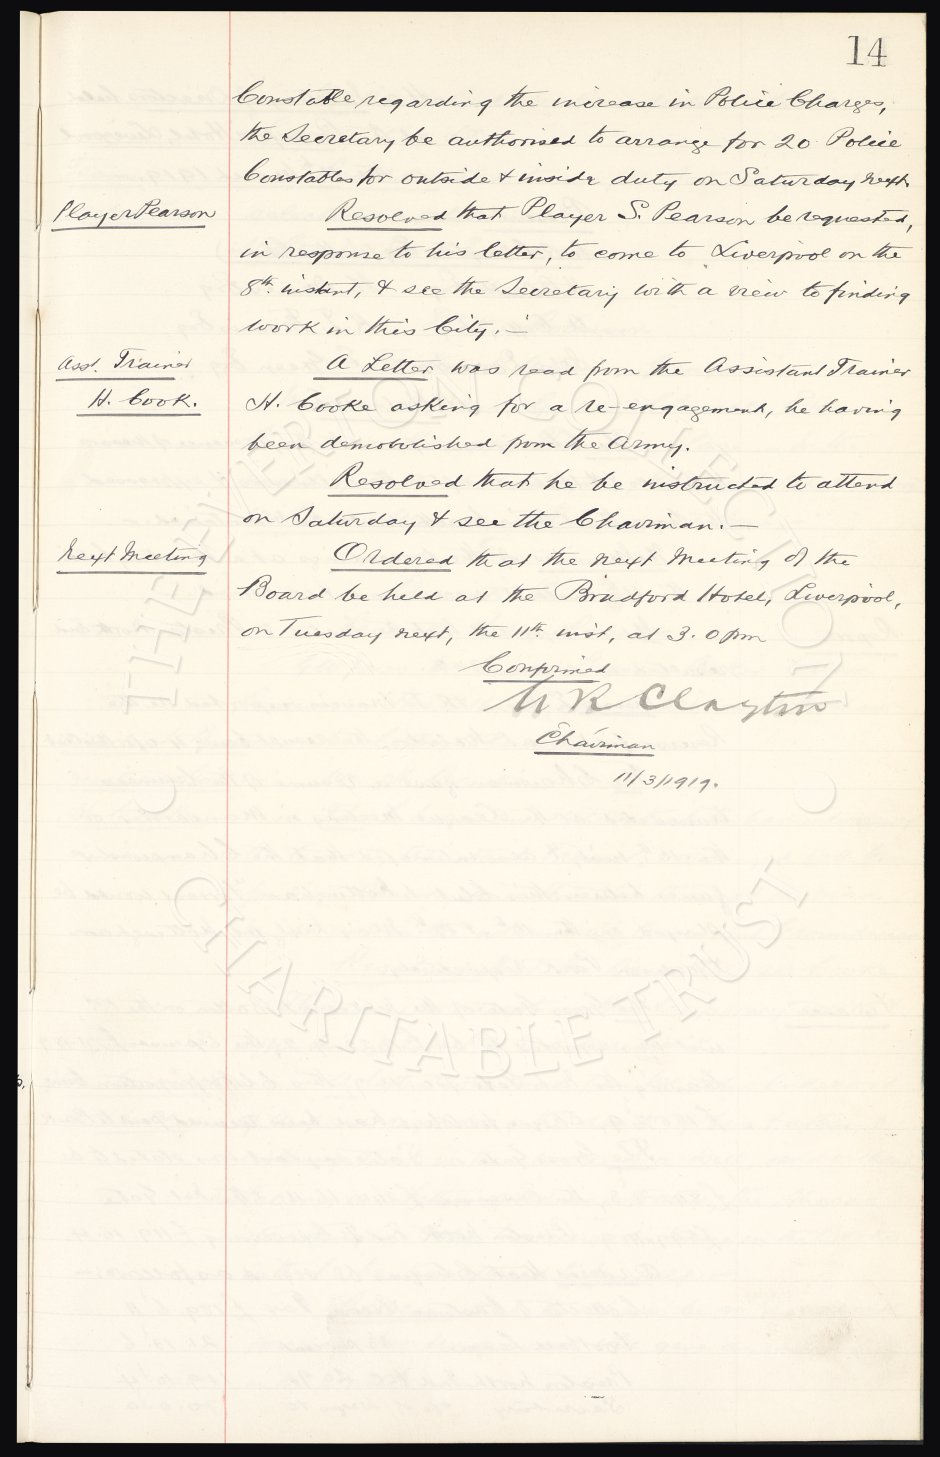 14
Constable regarding the increase in Police Charges,
the Secretary be authorised to arrange for 20 Police
Constables for outside & inside duty on Saturday next.
Player Pearson
Resolved that Player S. Pearson be requested,
in response to his letter, to come to Liverpool on the
8th instant, & see the Secretary with a view to finding
work in this City. —
Asst. Trainer
H. Cook.
A Letter was read from the Assistant Trainer
H. Cooke asking for a re-engagement, he having
been demobolished from the Army.
Resolved that he be instructed to attend
on Saturday & see the Chairman. —
Next Meeting
Ordered that the next Meeting of the
Board be held at the Bradford Hotel, Liverpool,
on Tuesday next, the 11th inst, at 3.0 pm
Confirmed
W R Clayton
Chairman
11/3/1919.
THE EVERTON COLLECTION
CHARITABLE TRUST